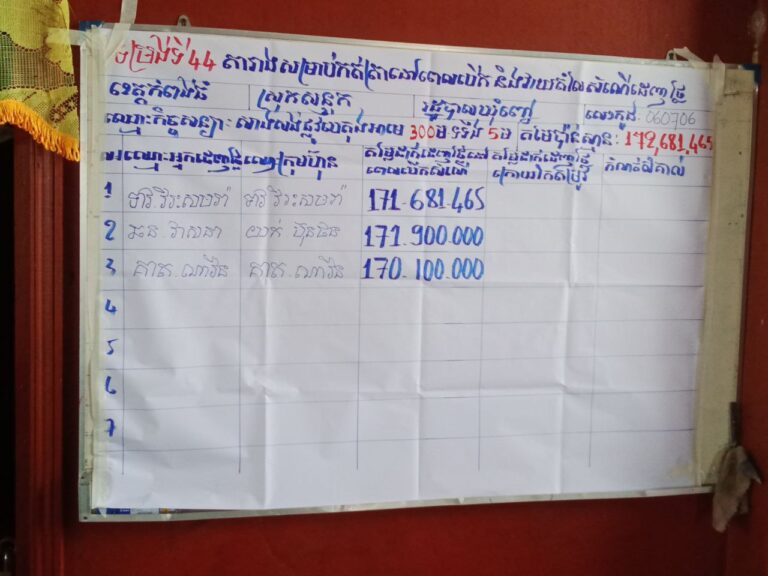 ទម្រង់ទី 44 តារាងសម្រាប់កត់ត្រានៅពេលបើក និងវាយតំលៃសំណើដេញថ្លៃ
ខេត្តកំពង់ធំ ស្រុកសន្ទុក រដ្ឋបាលឃុំ លេខកូដ: 060706
ឈ្មោះកិច្ចសន្យា: សាងសង់ផ្លូវបេតុងអាមេ 300ម ទទឹង 5ម តម្លៃប៉ាន់ស្មាន: 172,681,465
ឈ្មោះអ្នកដេញថ្លៃ ឈ្មោះក្រុមហ៊ុន តម្លៃដាក់ដេញថ្លៃនៅ ពេលបើកសំណើ តម្លៃដាក់ដេញថ្លៃ ក្រោយកែតម្រូវ កំណត់សំគាល់
1 171.681.465
2 171.900.000
3 170.100.000
4
5
6
7